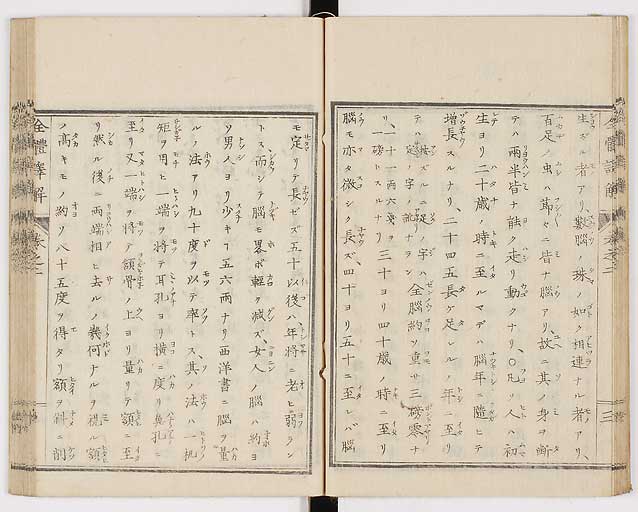 生ズル者アリ、數腦ノ珠ノ如ク相連ナル者アリ、
百足ノ虫ハ節ニ皆ナ腦アリ、故ニ其ノ身ヲ斷
テハ兩半皆ナ能ク走リ動クナリ、〇凡ソ人ハ初
生ヨリ二十歳ノ時ニ至ルマデハ腦年ニ隨ヒテ
增長スルナリ、二十四五長ケ足レルノ年ニ至リ
テハ 按ズルニ足ノ字ハ定ノ字ノ訛ナラン 全腦約ソ重サ三磅零ナ
リ、一十一兩六 一磅トスルナリ 三十ヨリ四十歳ノ時ニ至リ
腦モ亦タ微シク長ズ、四十ヨリ五十ニ至レバ腦
三
全體譯解 卷之二
モ定リテ長ゼズ五十以後ハ年將ニ老ヒ弱ラン
トス、而シテ腦モ畧ボ輕ク減ズ、女人ノ腦ハ約ヨ
ソ男人ヨリ少キ五六兩ナリ西洋書ニ腦ヲ量
ルノ法アリ九十度ヲ以テ率トス、其ノ法ハ一机
矩ヲ用ヒ一端ヲ將テ耳孔ヨリ橫ニ度リ鼻孔ニ
至リ又一端ヲ將テ額骨ノ上ヨリ量リテ額ニ至
リ然ル後ニ兩端相ヒ去ルノ幾何ナルヲ視ル額
ノ高キモノ約ソ八十五度ヲ得タリ額ヲ斜ニ削